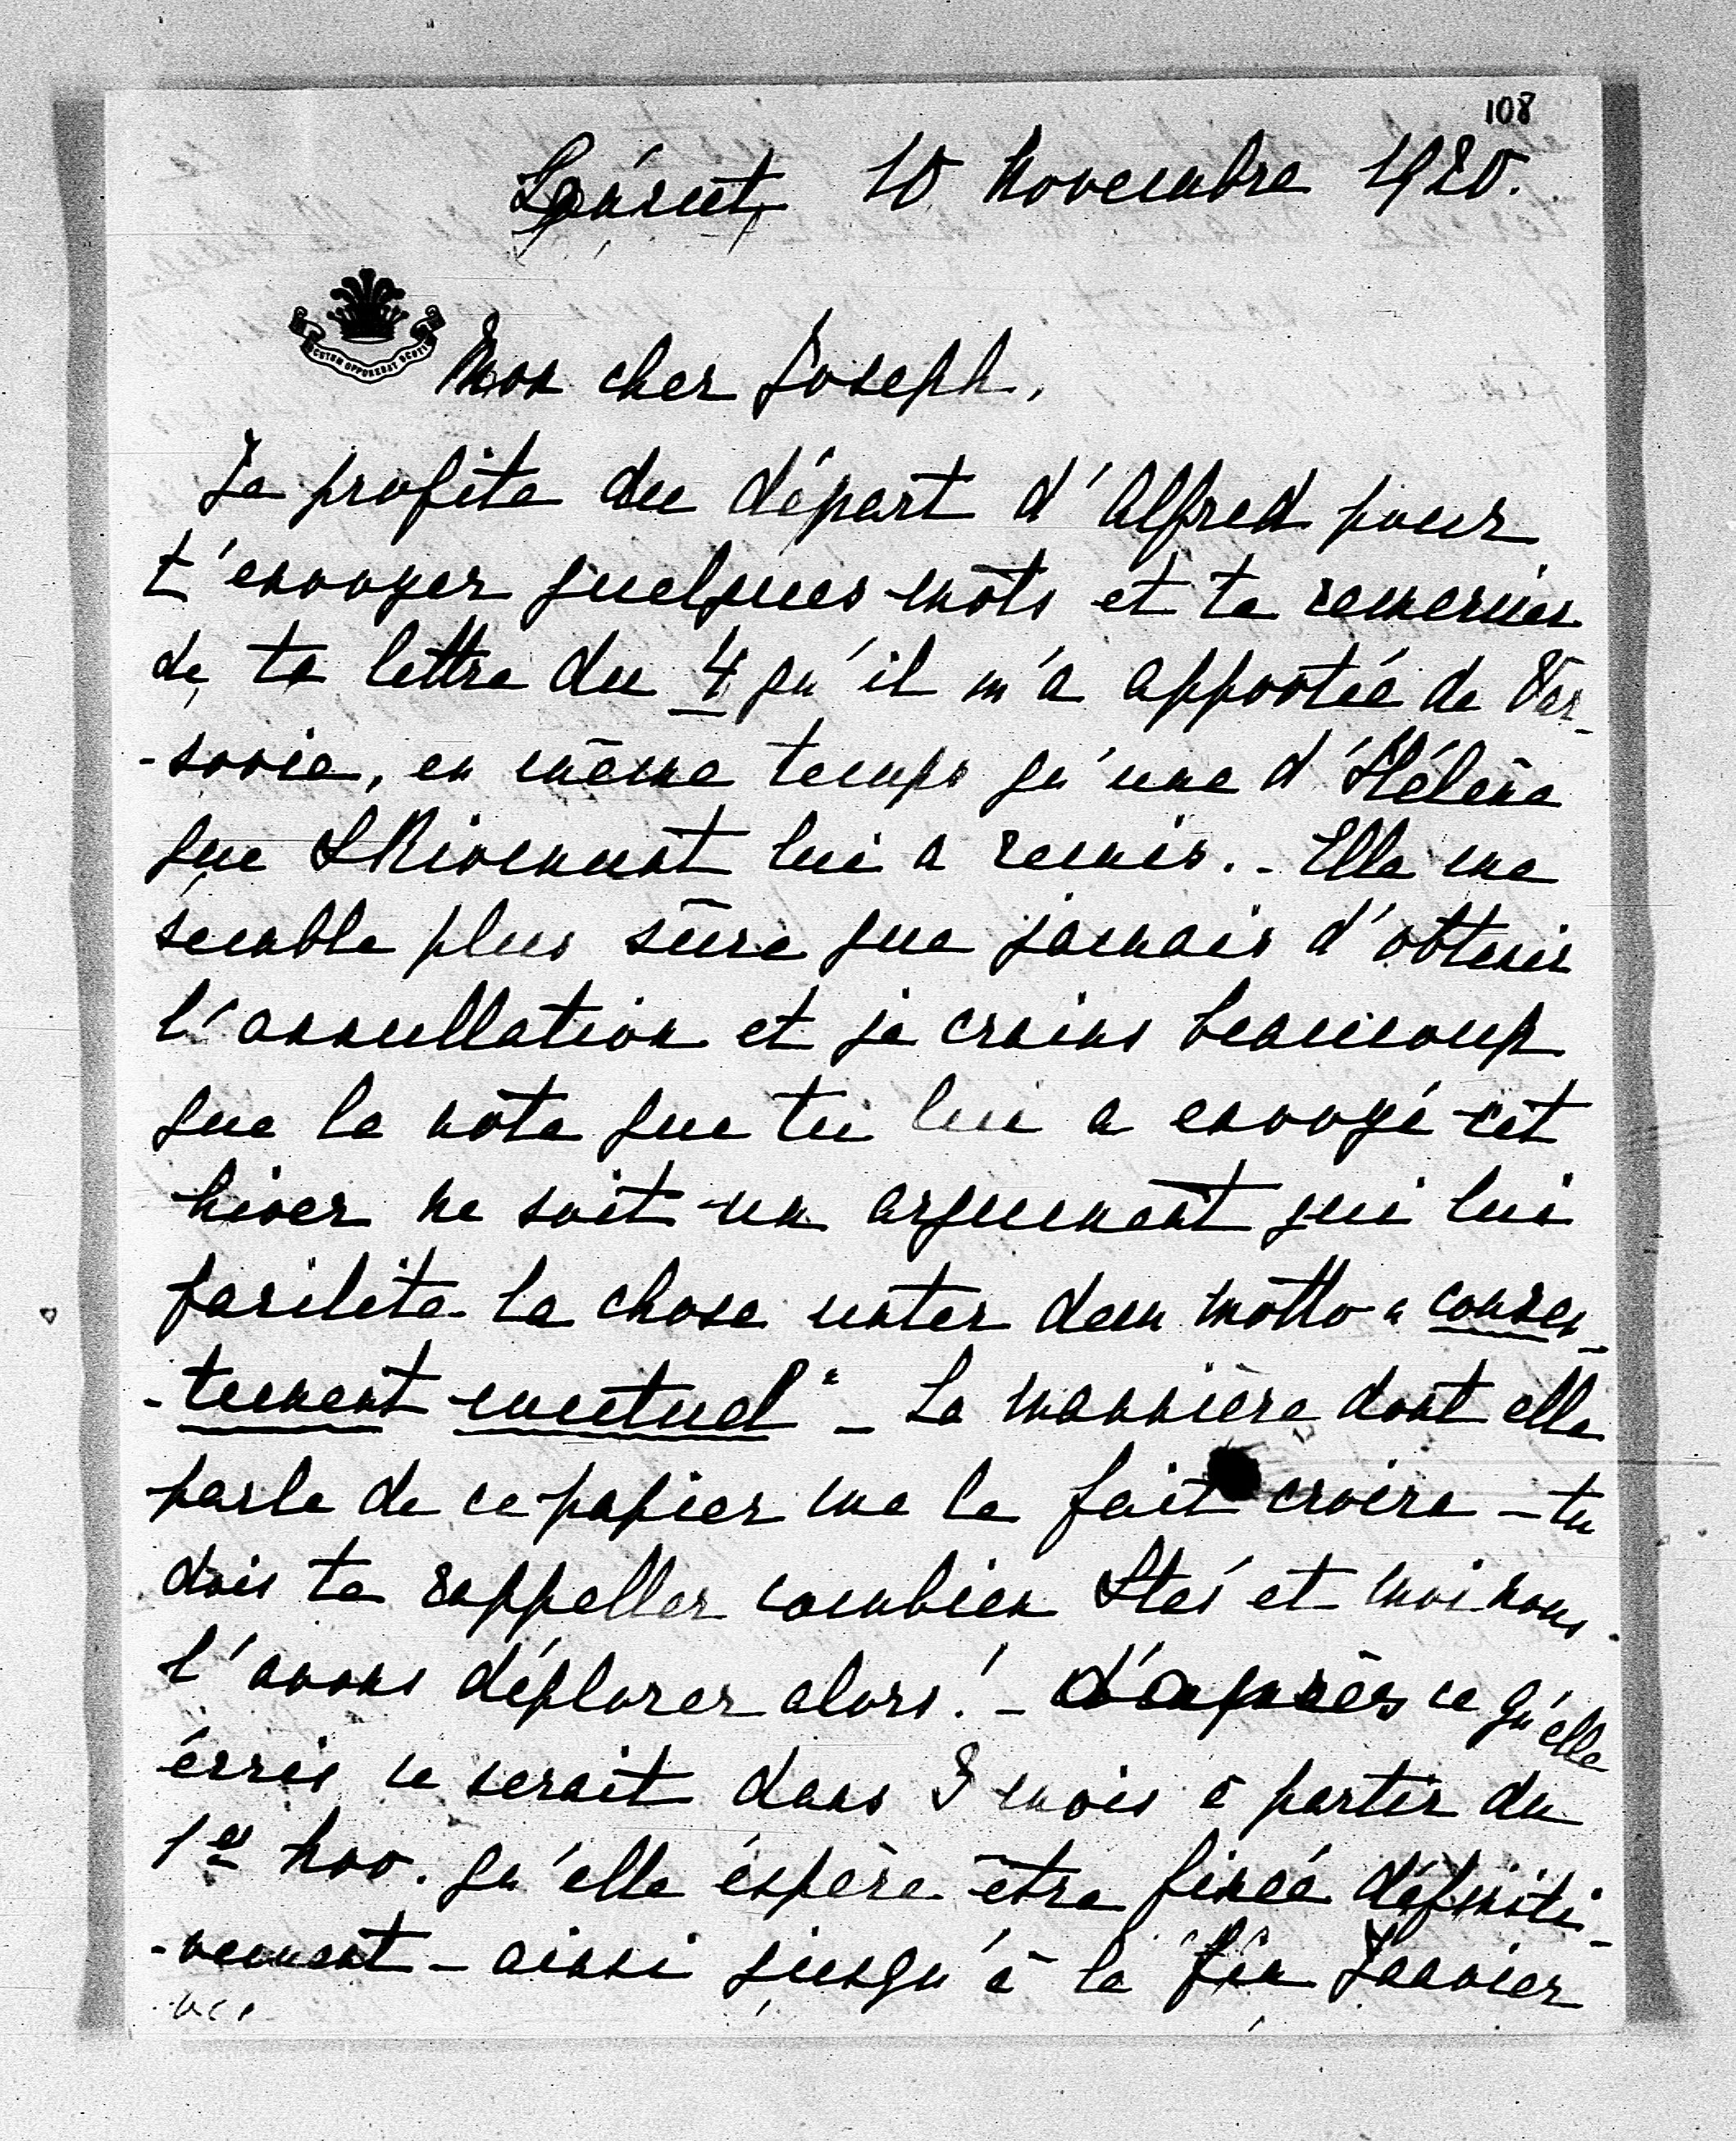 108
Łańcut, 10 Novembre 1920.
SCUTUM OPPONEBAT SCUTIS
Mon cher Joseph,
Je profite du départ d'Alfred pour
t'envoyer quelques mots et te remercier
de ta lettre du 4 qu'il m'a apportée de Var-
-sovie, en même temps qu'une d'Hélène
que lui a remis. - Elle me
semble plus sûre que jamais d'obtenir
l'annullation et je crains beaucoup
que la note que tu lui a envoyé cet
hiver ne soit un argument qui lui
facilite la chose unter dem motto "consen-
-tement mutuel" - La mannière dont elle
parle de ce papier me le fait croire - tu
dois te rappeller combien et moi nous
l'avons déplorer alors! - d'après ce qu'elle
écris ce serait dans 3 mois à partir du
1er Nov. qu'elle éspère être fixée définiti-
-vement - ainsi jusqu'à la fin Janvier